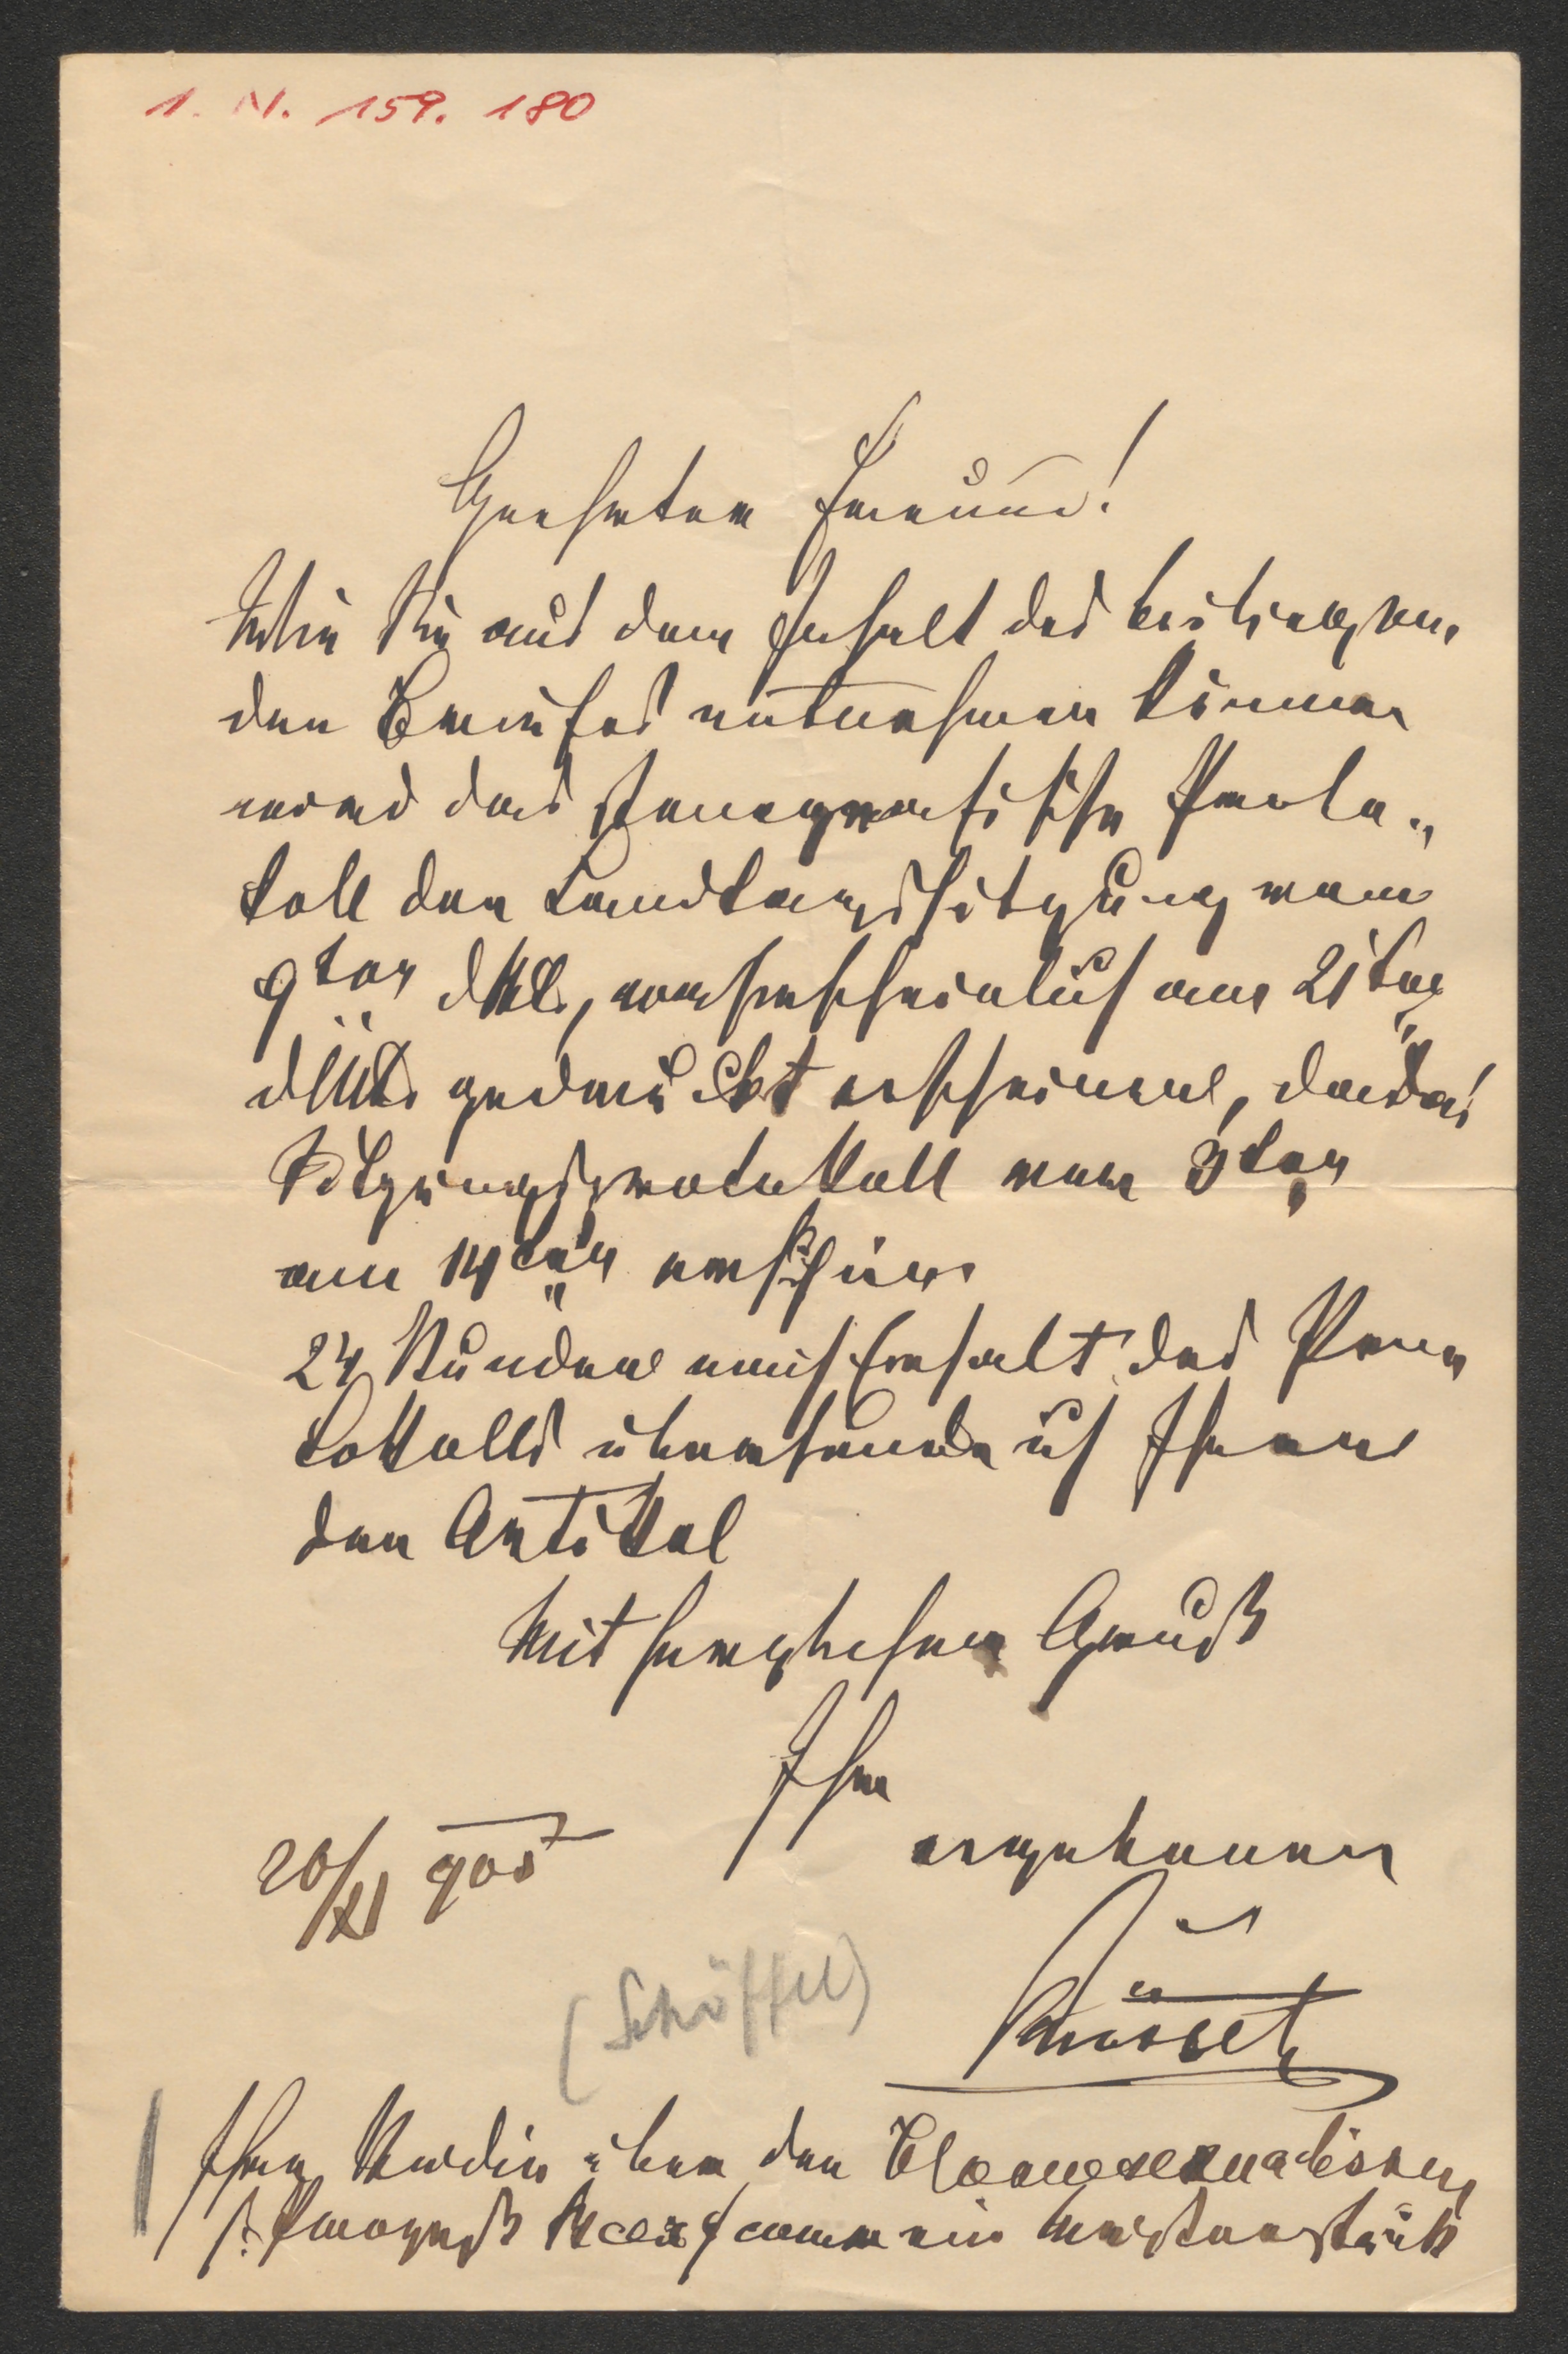 1. N. 159. 180
Geehrter Freund!
Wie Sie aus dem Inhalt des beiliegen
den Briefes entnehmen können
wird das stenografische Proto-
koll der Landtagssitzung vom
9ten d Mts, wahrscheinlich am 21ten
d Mts gedruckt erscheinen, da das
Sitzungsprotokoll vom 3ten
am 14ten erschien
24 Stunden nach Erhalt des Pro
tokolls übersende ich Ihnen
den Artikel
Mit herzlichen Gruß
Ihr
ergebener
20/XI 905
(Schöffel)
Ihre Studie über den
Prozeß war ein Meisterstück